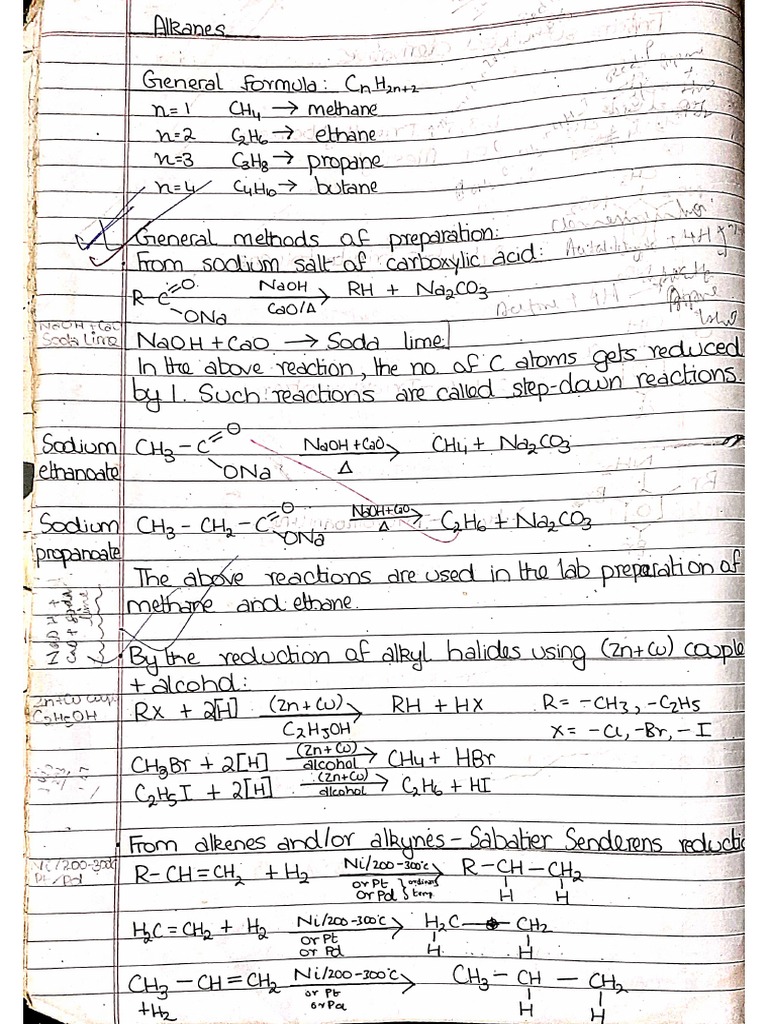 Alkanes
General formula: CnH2n+2
n=1 CH4 → methane
n=2 C2H6 → ethane
n=3 C3H8 → propane
n=4 C4H10 → butane
General methods of preparation:
From sodium salt of carboxylic acid:
R-C=O ONa NaOH CaO/Δ → RH + Na2CO3
NaOH+CaO Soda Lime
NaOH + CaO → Soda lime
In the above reaction, the no. of C atoms gets reduced
by 1. Such reactions are called step-down reactions.
Sodium ethanoate CH3-C=O ONa NaOH+CaO Δ → CH4 + Na2CO3
Sodium propanoate CH3-CH2-C=O ONa NaOH+CaO Δ → C2H6 + Na2CO3
The above reactions are used in the lab preparation of
methane and ethane.
NaOH +
CaO + Soda
lime
By the reduction of alkyl halides using (Zn+Cu) couple
+ alcohol:
Zn+Cu coup
C2H5OH
RX + 2[H] (Zn+Cu) C2H5OH → RH + HX R= -CH3, -C2H5
X= -Cl, -Br, -I
CH3Br + 2[H] (Zn+Cu) alcohol → CH4 + HBr
C2H5I + 2[H] (Zn+Cu) alcohol → C2H6 + HI
From alkenes and/or alkynes - Sabatier Senderens reductio
Ni/200-300°C
Pt/Pd
R-CH=CH2 + H2 Ni/200-300°C or Pt or Pd } ordinary temp → R-CH-CH2
H H
H2C=CH2 + H2 Ni/200-300°C or Pt or Pd → H2C-CH2
H H
CH3-CH=CH2 Ni/200-300°C or Pt or Pd → CH3-CH-CH2
+H2 H H